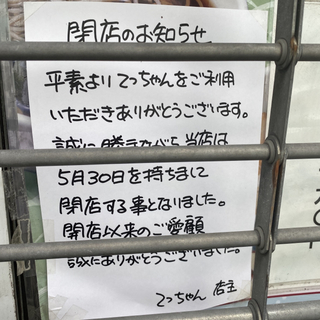 閉店のお知らせ
平素よりてっちゃんをご利用
いただきありがとうございます。
誠に勝手ながら当店は
5月30日を持ちまして
閉店する事となりました。
開店以来のご愛顧
誠にありがとうございました。
てっちゃん 店主